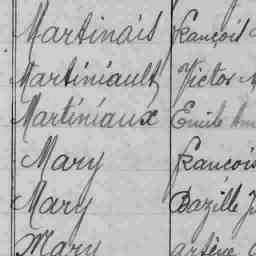 Martinais François
Martiniault Victor
Martiniaux Emile
Mary Francois
Mary Bazille
Mary arsène